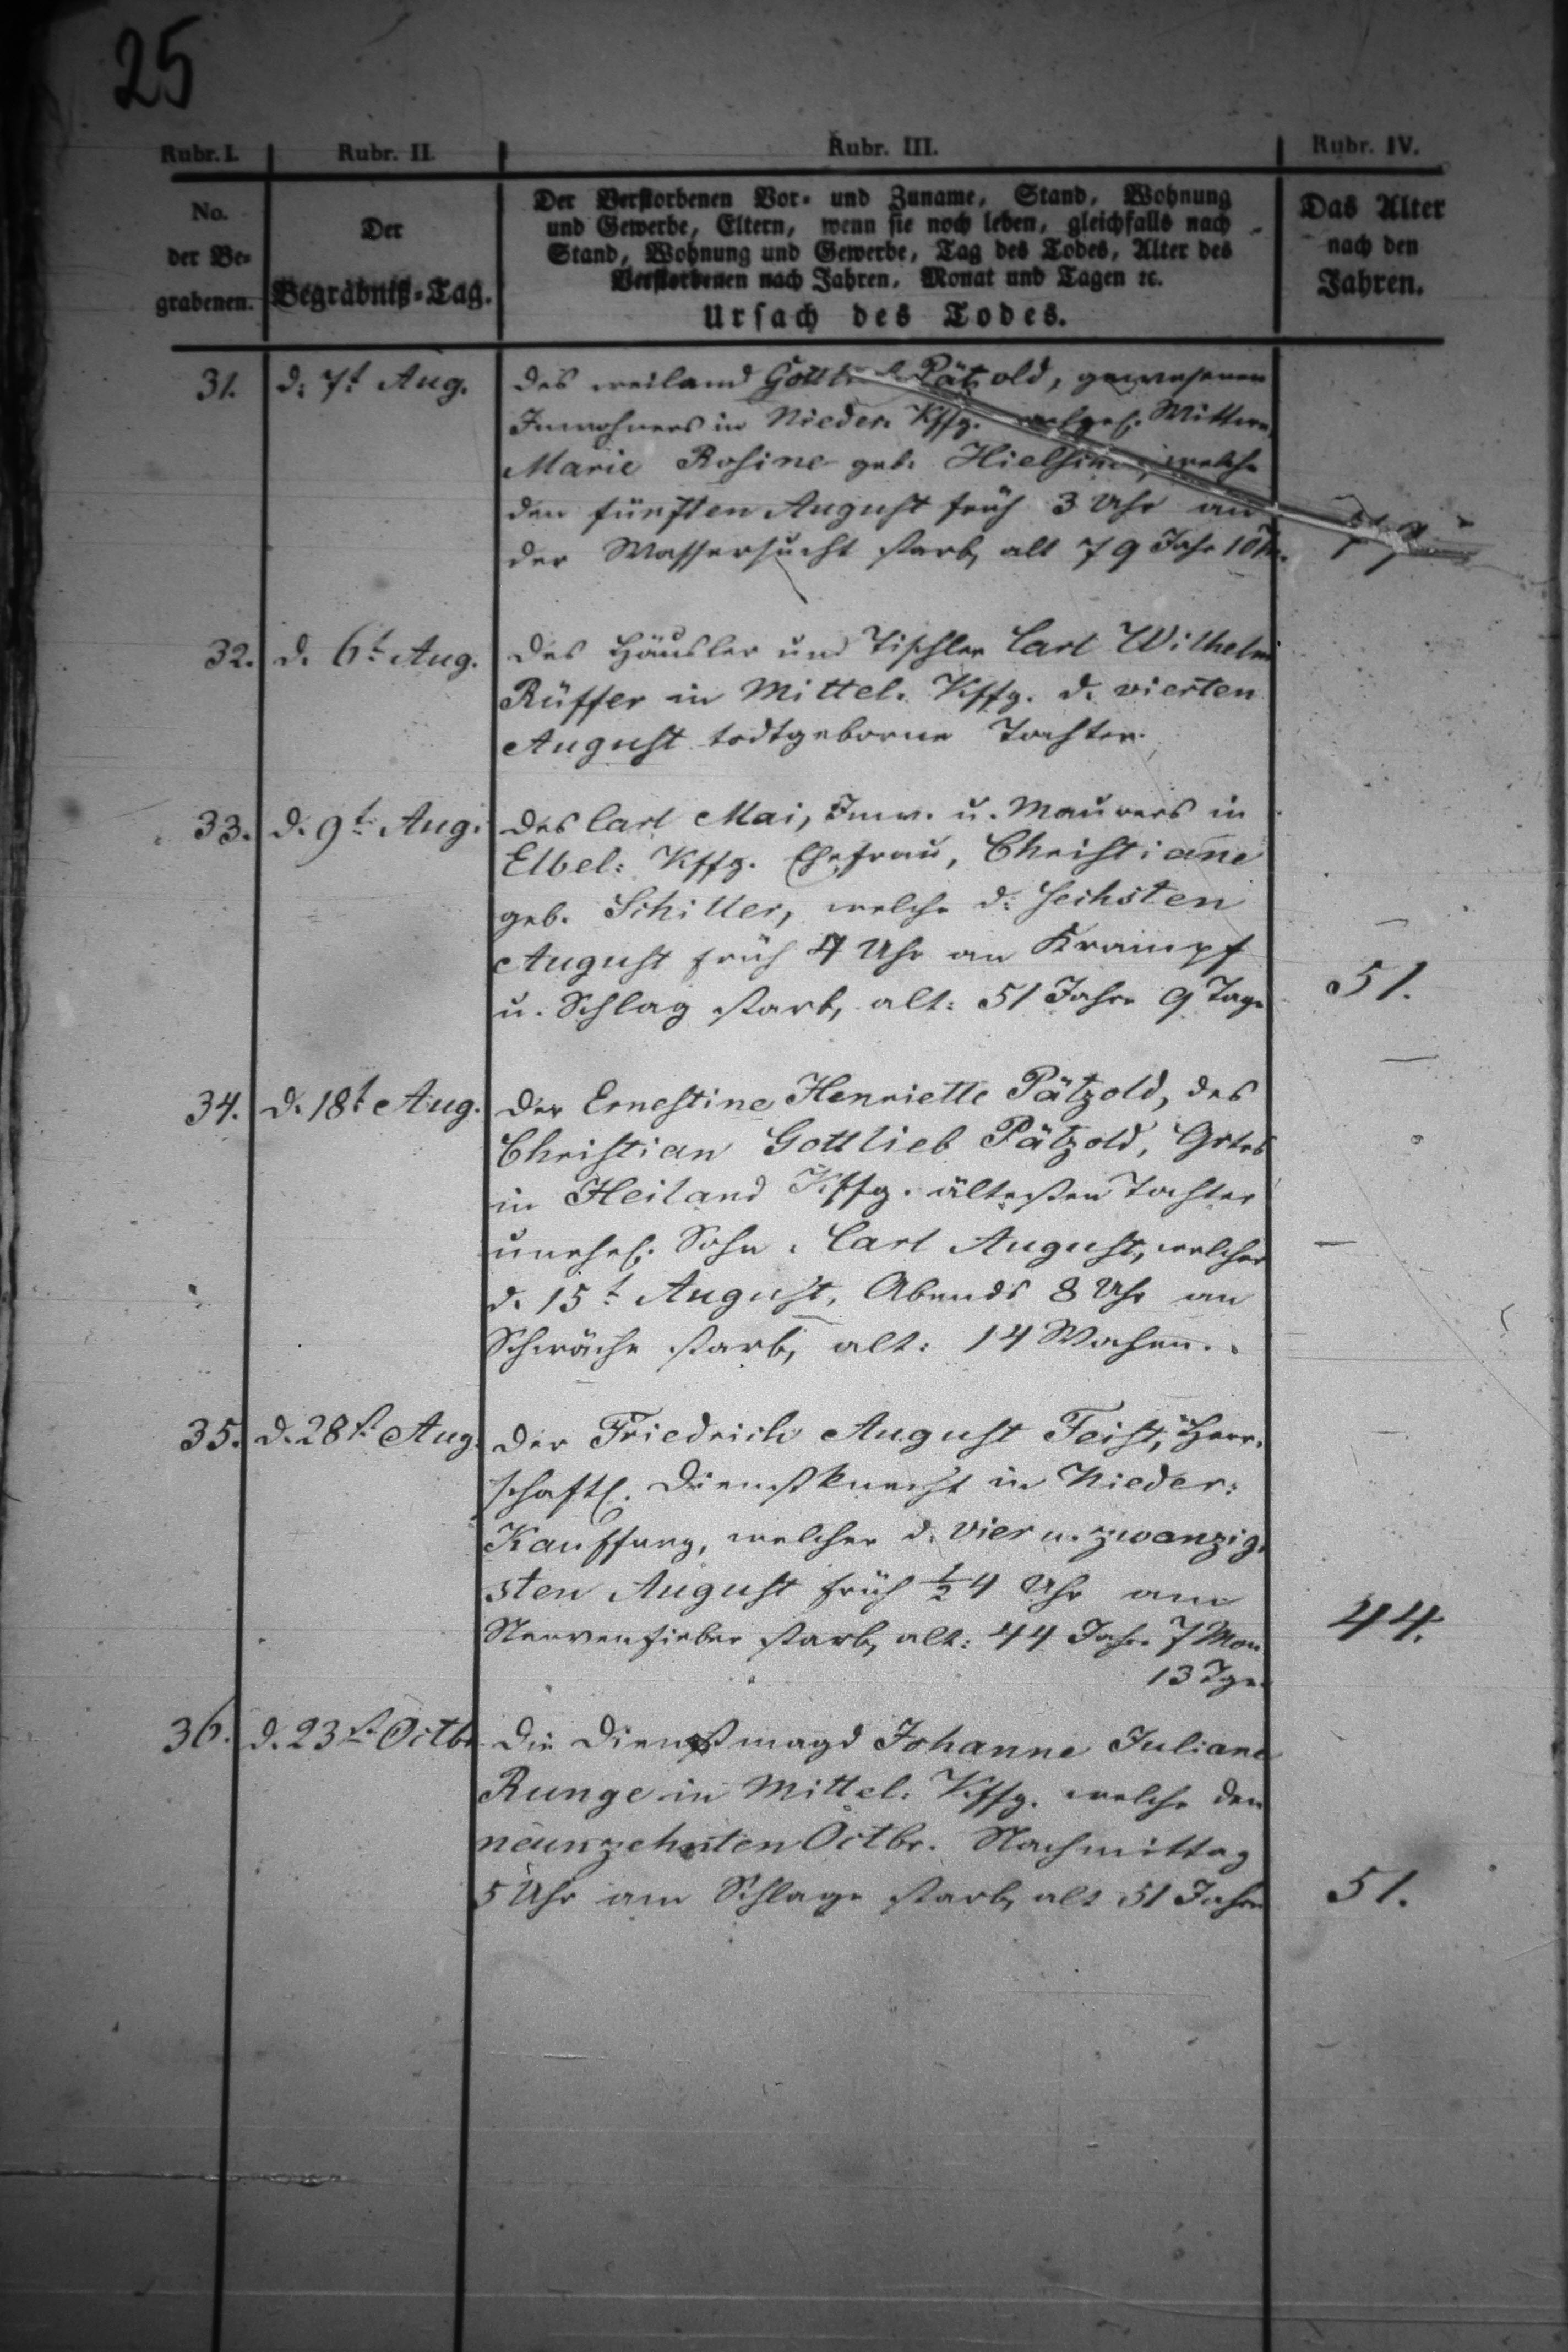 25
Rubr. I. Rubr. II. Rubr. III. Rubr. IV.
No. der Be- grabenen.
Der Begräbniß-Tag.
Der Verstorbenen Vor- und Zuname, Stand, Wohnung
und Gewerbe, Eltern, wenn sie noch leben, gleichfalls nach
Stand, Wohnung und Gewerbe, Tag des Todes, Alter des
Verstorbenen nach Jahren, Monat und Tagen ꝛc.
Ursach des Todes.
Das Alter
nach den
Jahren.
31. d. 7t Aug. Des weiland Pätzold, gewesenen
Inwohners in Nieder. Kffg.
Marie Rosine geb. welche
den fünften August früh 3 Uhr an
der Wassersucht starb, alt 79 Jahr
32. d. 6t Aug. Des Häusler und Tischler Carl Wilhelm
Rüffer in Mittel. Kffg. d. vierten
August todtgeborne Tochter.
33. d. 9t Aug. Des Carl Mai, Inw. u. Maurers in
Elbel: Kffg. Ehefrau, Christiane
geb. Schiller, welche d: sechsten
August früh 4 Uhr an Krampf
u. Schlag starb, alt: 51 Jahr 9 Tage 51.
34. d. 18t Aug. Der Ernestine Henriette Pätzold, des
Christian Gottlieb Pätzold, Grtrs
in Heiland Kffg. ältesten Tochter
unehel. Sohn. Carl August, welcher
d. 15t August, Abends 8 Uhr an
Schwäche starb, alt: 14 Wochen.
35. d. 28t Aug. Der Friedrich August Feist, Herr-
schaftl. Dienstknecht in Nieder:
Kauffung, welcher d. vier u. zwanzig-
sten August früh ½4 Uhr am
Nervenfieber starb, alt: 44 Jahr 7 Mon 44.
13 Tge.
36. d. 23t Octbr. Die Dienstmagd Johanne Juliane
Runge in Mittel. Kffg. welche den
neunzehnten Octbr. Nachmittag
5 Uhr am Schlage starb, alt 51 Jahr 51.